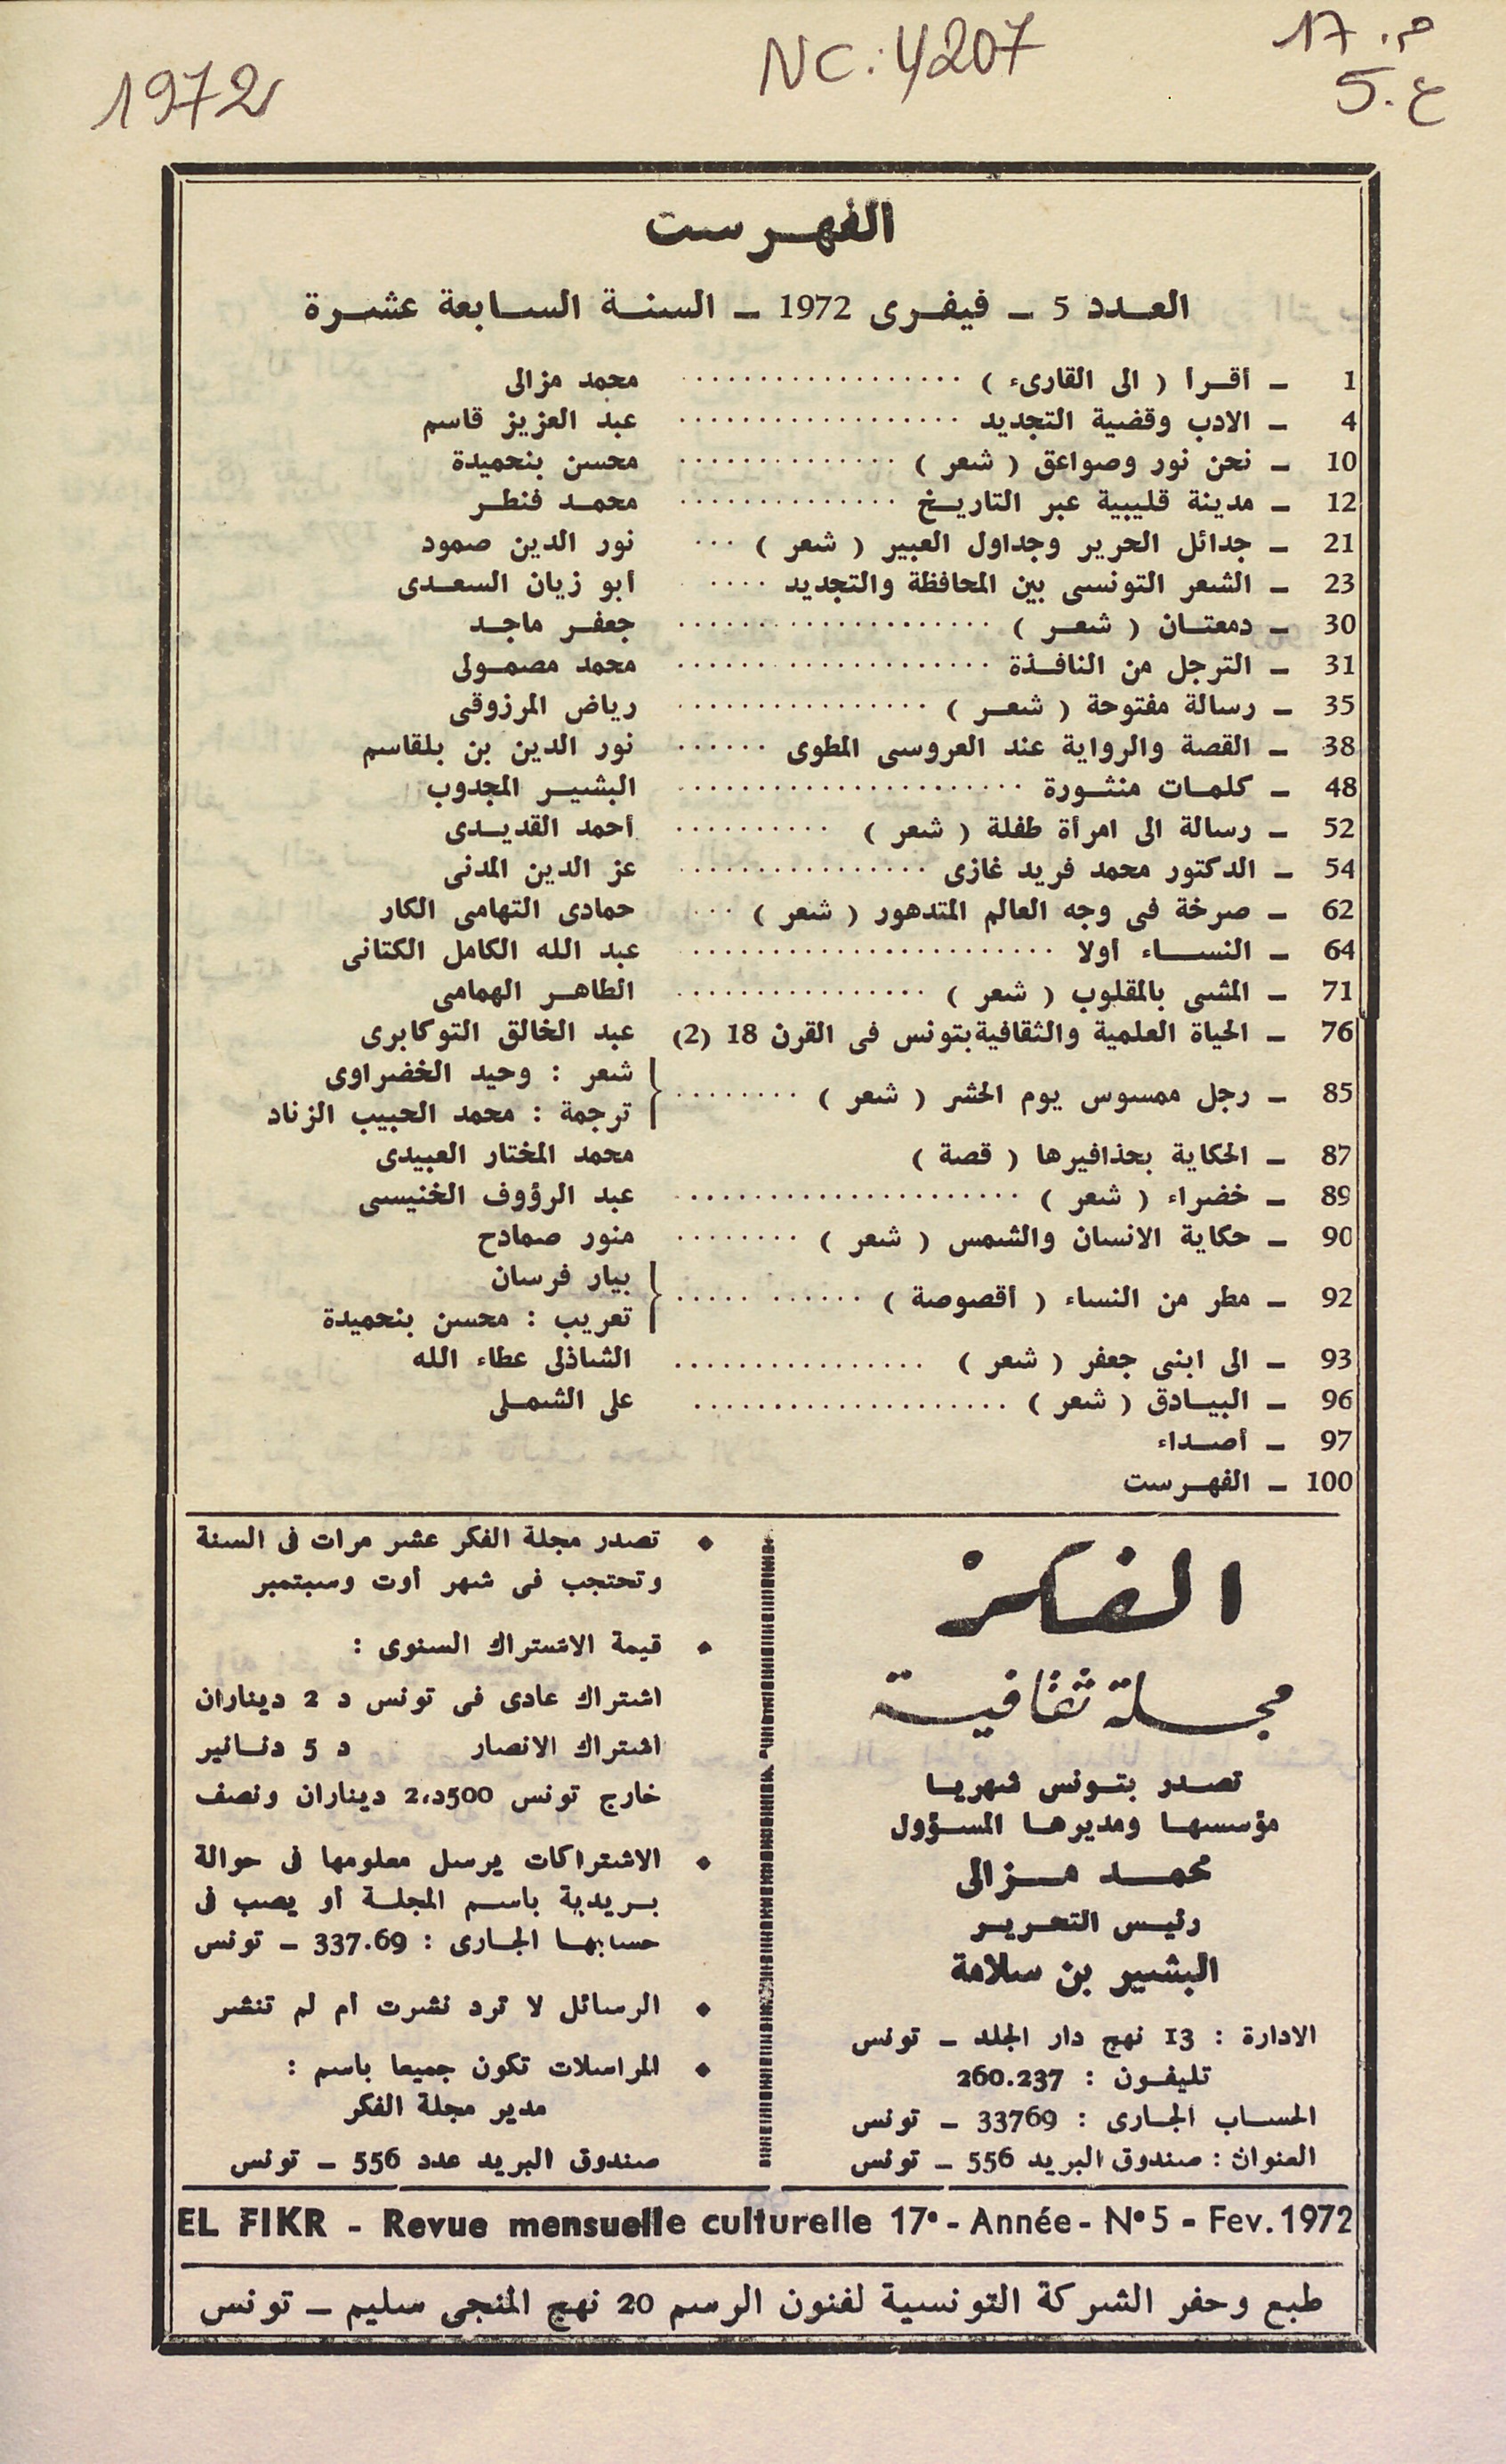 1972
NC: 4207
م. 17
ع. 5
الفهرست
العدد 5 ـ فيفرى 1972 ـ السنة السابعة عشرة
1 ـ أقرأ ( الى القارىء ) .................. محمد مزالى
4 ـ الادب وقضية التجديد .................. عبد العزيز قاسم
10 ـ نحن نور وصواعق ( شعر ) .............. محسن بنحميدة
12 ـ مدينة قليبية عبر التاريخ .............. محمد فنطر
21 ـ جدائل الحرير وجداول العبير ( شعر ) ... نور الدين صمود
23 ـ الشعر التونسى بين المحافظة والتجديد .... أبو زيان السعدى
30 ـ دمعتان ( شعر ) .................... جعفر ماجد
31 ـ الترجل من النافذة .................... محمد مصمولى
35 ـ رسالة مفتوحة ( شعر ) ................ رياض المرزوقى
38 ـ القصة والرواية عند العروسى المطوى ...... نور الدين بن بلقاسم
48 ـ كلمات منثورة ...................... البشير المجدوب
52 ـ رسالة الى امرأة طفلة ( شعر ) .......... أحمد القديدى
54 ـ الدكتور محمد فريد غازى ................ عز الدين المدنى
62 ـ صرخة فى وجه العالم المتدهور ( شعر ) ... حمادى التهامى الكار
64 ـ النساء أولا ........................ عبد الله الكامل الكتانى
71 ـ المشى بالمقلوب ( شعر ) ................ الطاهر الهمامى
76 ـ الحياة العلمية والثقافية بتونس فى القرن 18 (2) عبد الخالق التوكابرى
85 ـ رجل ممسوس يوم الحشر ( شعر ) ........ شعر : وحيد الخضراوى
ترجمة : محمد الحبيب الزناد
87 ـ الحكاية بحذافيرها ( قصة ) محمد المختار العبيدى
89 ـ خضراء ( شعر ) ...................... عبد الرؤوف الخنيسى
90 ـ حكاية الانسان والشمس ( شعر ) ........ منور صمادح
92 ـ مطر من النساء ( أقصوصة ) ........... بيار فرسان
تعريب : محسن بنحميدة
93 ـ الى ابنى جعفر ( شعر ) ................ الشاذلى عطاء الله
96 ـ البيادق ( شعر ) .................... على الشملى
97 ـ أصداء
100 ـ الفهرست
الفكر
مجلة ثقافية
تصدر بتونس شهريا
مؤسسها ومديرها المسؤول
محمد مزالى
رئيس التحرير
البشير بن سلامة
الادارة : 13 نهج دار الجلد ـ تونس
تليفون : 260.237
الحساب الجارى : 33769 ـ تونس
العنوان : صندوق البريد 556 ـ تونس
◆ تصدر مجلة الفكر عشر مرات فى السنة
وتحتجب فى شهر أوت وسبتمبر
◆ قيمة الاشتراك السنوى :
اشتراك عادى فى تونس د 2 ديناران
اشتراك الانصار د 5 دنانير
خارج تونس 500د،2 ديناران ونصف
◆ الاشتراكات يرسل معلومها فى حوالة
بريدية باسم المجلة أو يصب فى
حسابها الجارى : 337.69 ـ تونس
◆ الرسائل لا ترد نشرت أم لم تنشر
◆ المراسلات تكون جميعا باسم :
مدير مجلة الفكر
صندوق البريد عدد 556 ـ تونس
EL FIKR - Revue mensuelle culturelle 17e - Année - N° 5 - Fev. 1972
طبع وحفر الشركة التونسية لفنون الرسم 20 نهج المنجى سليم ـ تونس